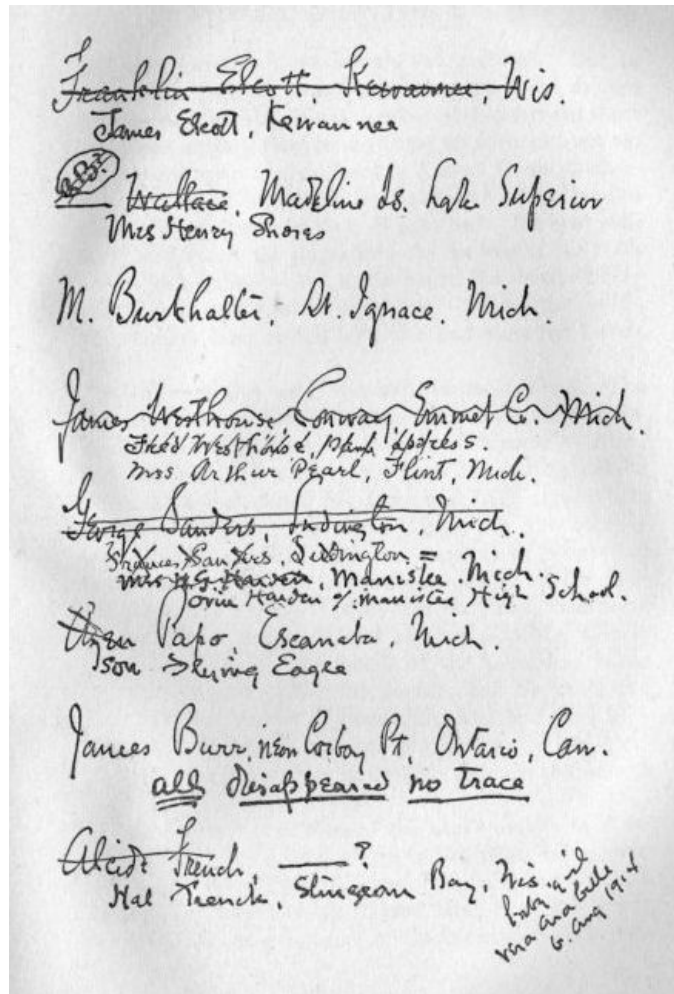 Franklin Elcott, Kewaunee, Wis.
James Elcott, Kewaunee
Wallace, Madeline Is. Lake Superior
Mrs Henry Shores
M. Burkhalter, St. Ignace. Mich.
James Westhouse, Conway, Emmet Co. Mich.
Fred Westhouse,
Mrs Arthur Pearl, Flint, Mich.
George Sanders, Ludington, Mich.
Sanders, Luddington =
Mrs Manistee Mich.
Harden % Manistee High School.
Papo, Escanaba, Mich.
son Flying Eagle
James Burr, near Corbay Pt, Ontario, Can.
all disappeared no trace
Alcide French, ?
Hal French, Sturgeon Bay, Wis.
baby girl
6. Aug 1914